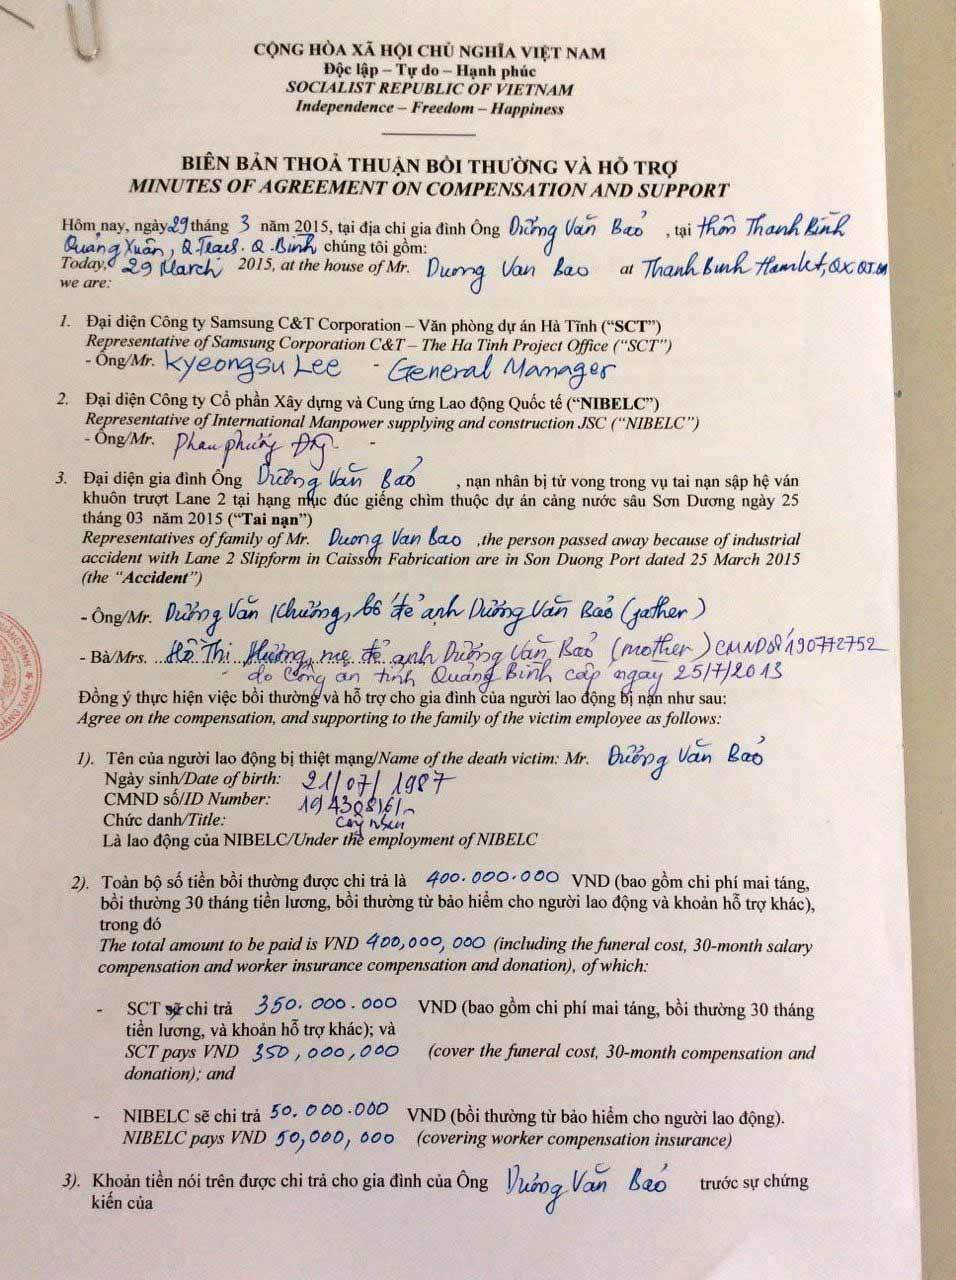 CỘNG HÒA XÃ HỘI CHỦ NGHĨA VIỆT NAM
Độc lập – Tự do – Hạnh phúc
SOCIALIST REPUBLIC OF VIETNAM
Independence – Freedom – Happiness
BIÊN BẢN THOẢ THUẬN BỒI THƯỜNG VÀ HỖ TRỢ
MINUTES OF AGREEMENT ON COMPENSATION AND SUPPORT
Hôm nay, ngày 29 tháng 3 năm 2015, tại địa chỉ gia đình Ông Dương Văn Bảo , tại thôn Thanh Bình
Quảng Xuân, Q. Trạch. Q. Bình chúng tôi gồm:
Today, 29 March 2015, at the house of Mr. Duong Van Bao at Thanh Binh Hamlet, QX
we are:
1. Đại diện Công ty Samsung C&T Corporation – Văn phòng dự án Hà Tĩnh (“SCT”)
Representative of Samsung Corporation C&T – The Ha Tinh Project Office (“SCT”)
- Ông/Mr. Kyeongsu Lee - General Manager
2. Đại diện Công ty Cổ phần Xây dựng và Cung ứng Lao động Quốc tế (“NIBELC”)
Representative of International Manpower supplying and construction JSC (“NIBELC”)
- Ông/Mr. Phan phương -
3. Đại diện gia đình Ông Dương Văn Bảo , nạn nhân bị tử vong trong vụ tai nạn sập hệ ván
khuôn trượt Lane 2 tại hạng mục đúc giếng chìm thuộc dự án cảng nước sâu Sơn Dương ngày 25
tháng 03 năm 2015 (“Tai nạn”)
Representatives of family of Mr. Duong Van Bao ,the person passed away because of industrial
accident with Lane 2 Slipform in Caisson Fabrication are in Son Duong Port dated 25 March 2015
(the “Accident”)
- Ông/Mr. Dương Văn Chương, bố đẻ anh Dương Văn Bảo (father)
- Bà/Mrs. Hồ Thị Hương, mẹ đẻ anh Dương Văn Bảo (mother) CMND số 190772752
- do Công an tỉnh Quảng Bình cấp ngày 25/7/2013
Đồng ý thực hiện việc bồi thường và hỗ trợ cho gia đình của người lao động bị nạn như sau:
Agree on the compensation, and supporting to the family of the victim employee as follows:
1). Tên của người lao động bị thiệt mạng/Name of the death victim: Mr. Dương Văn Bảo
Ngày sinh/Date of birth: 21/07/1987
CMND số/ID Number:
Chức danh/Title: Công nhân
Là lao động của NIBELC/Under the employment of NIBELC
2). Toàn bộ số tiền bồi thường được chi trả là 400.000.000 VND (bao gồm chi phí mai táng,
bồi thường 30 tháng tiền lương, bồi thường từ bảo hiểm cho người lao động và khoản hỗ trợ khác),
trong đó
The total amount to be paid is VND 400,000,000 (including the funeral cost, 30-month salary
compensation and worker insurance compensation and donation), of which:
- SCT sẽ chi trả 350.000.000 VND (bao gồm chi phí mai táng, bồi thường 30 tháng
tiền lương, và khoản hỗ trợ khác); và
SCT pays VND 350,000,000 (cover the funeral cost, 30-month compensation and
donation); and
- NIBELC sẽ chi trả 50.000.000 VND (bồi thường từ bảo hiểm cho người lao động).
NIBELC pays VND 50,000,000 (covering worker compensation insurance)
3). Khoản tiền nói trên được chi trả cho gia đình của Ông Dương Văn Bảo trước sự chứng
kiến của